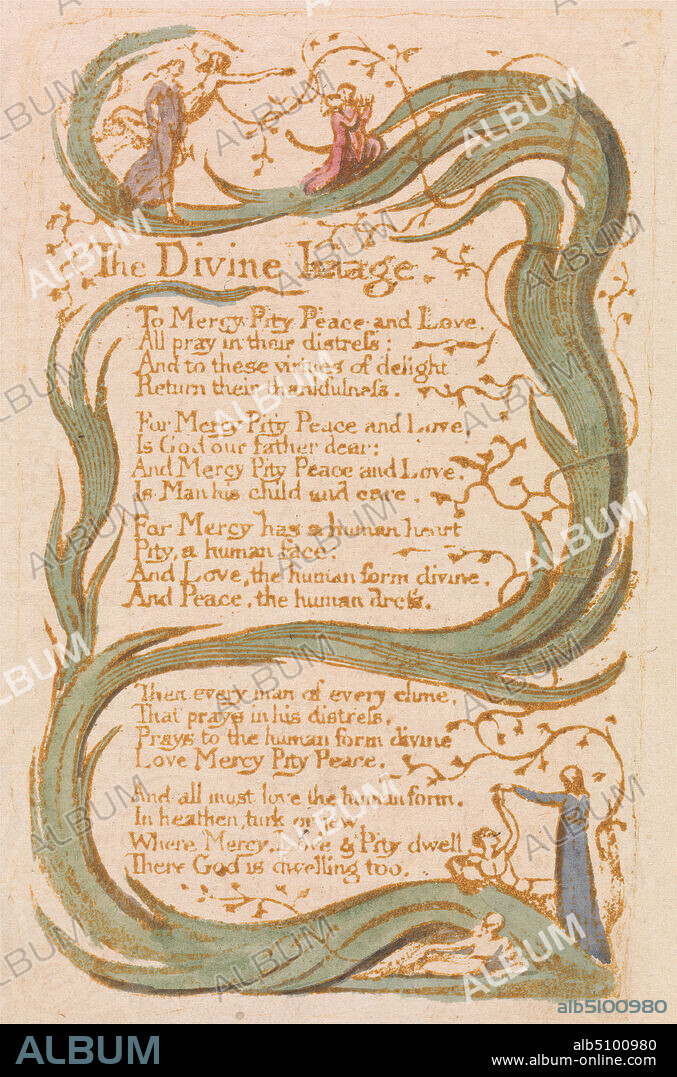 The Divine Image.
To Mercy Pity Peace and Love,
All pray in their distreſs:
And to these virtues of delight
Return their thankfulneſs.
For Mercy Pity Peace and Love,
Is God our father dear:
And Mercy Pity Peace and Love,
Is Man his child and care.
For Mercy has a human heart
Pity, a human face:
And Love, the human form divine,
And Peace, the human dreſs.
Then every man of every clime,
That prays in his distreſs,
Prays to the human form divine
Love Mercy Pity Peace.
And all must love the human form,
In heathen, turk or jew,
Where Mercy, Love & Pity dwell,
There God is dwelling too.
alb5100980
ALBUM
alb5100980
www.album-online.com